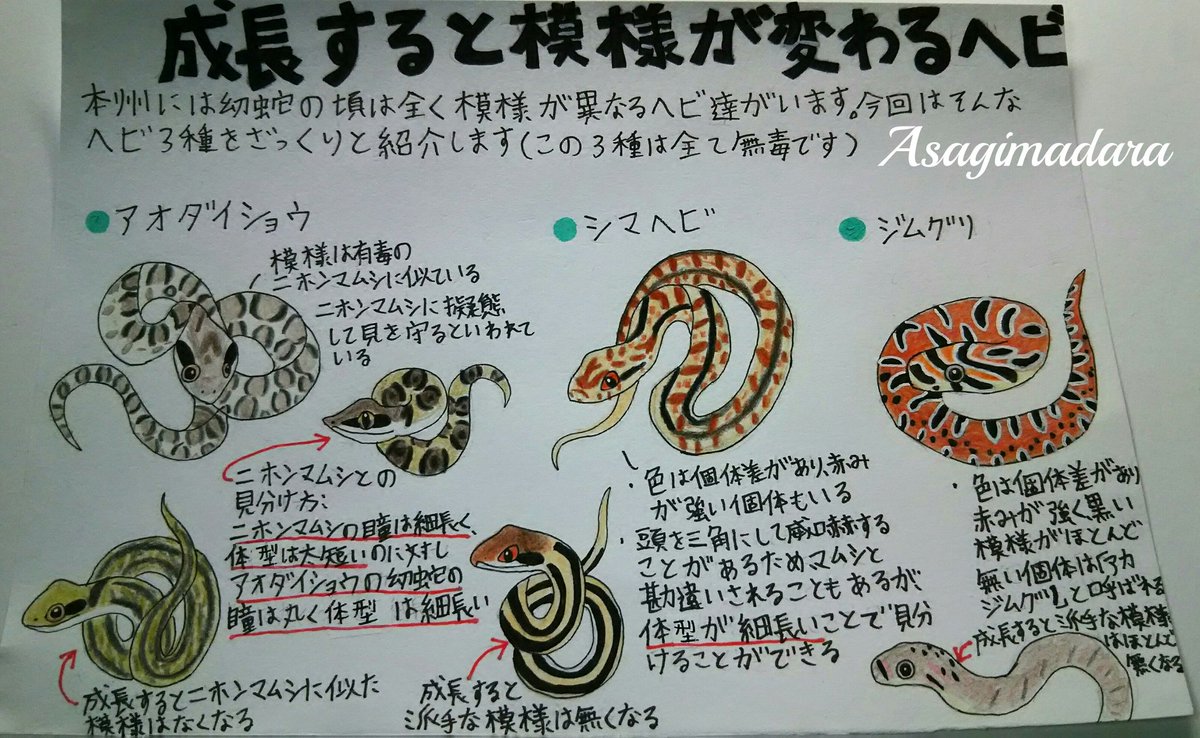 成長すると模様が変わるヘビ
本州には幼蛇の頃は全く模様が異なるヘビ達がいます。今回はそんな
ヘビ3種をざっくりと紹介します(この3種は全て無毒です)
Asagimadara
アオダイショウ
模様は有毒の
ニホンマムシに似ている
ニホンマムシに擬態
して見を守るといわれて
いる
ニホンマムシとの
見分け方:
ニホンマムシの瞳は細長く、
体型は太短いのに対し
アオダイショウの幼蛇の
瞳は丸く体型は細長い
成長するとニホンマムシに似た
模様はなくなる
シマヘビ
・色は個体差があり、赤み
が強い個体もいる
・頭を三角にして威嚇する
ことがあるためマムシと
勘違いされることもあるが、
体型が細長いことで見分
けることができる
成長すると
派手な模様は無くなる
ジムグリ
・色は個体差があり
赤みが強く黒い
模様がほとんど
無い個体は「アカ
ジムグリ」と呼ばれる
成長すると派手な模様
はほとんど
無くなる